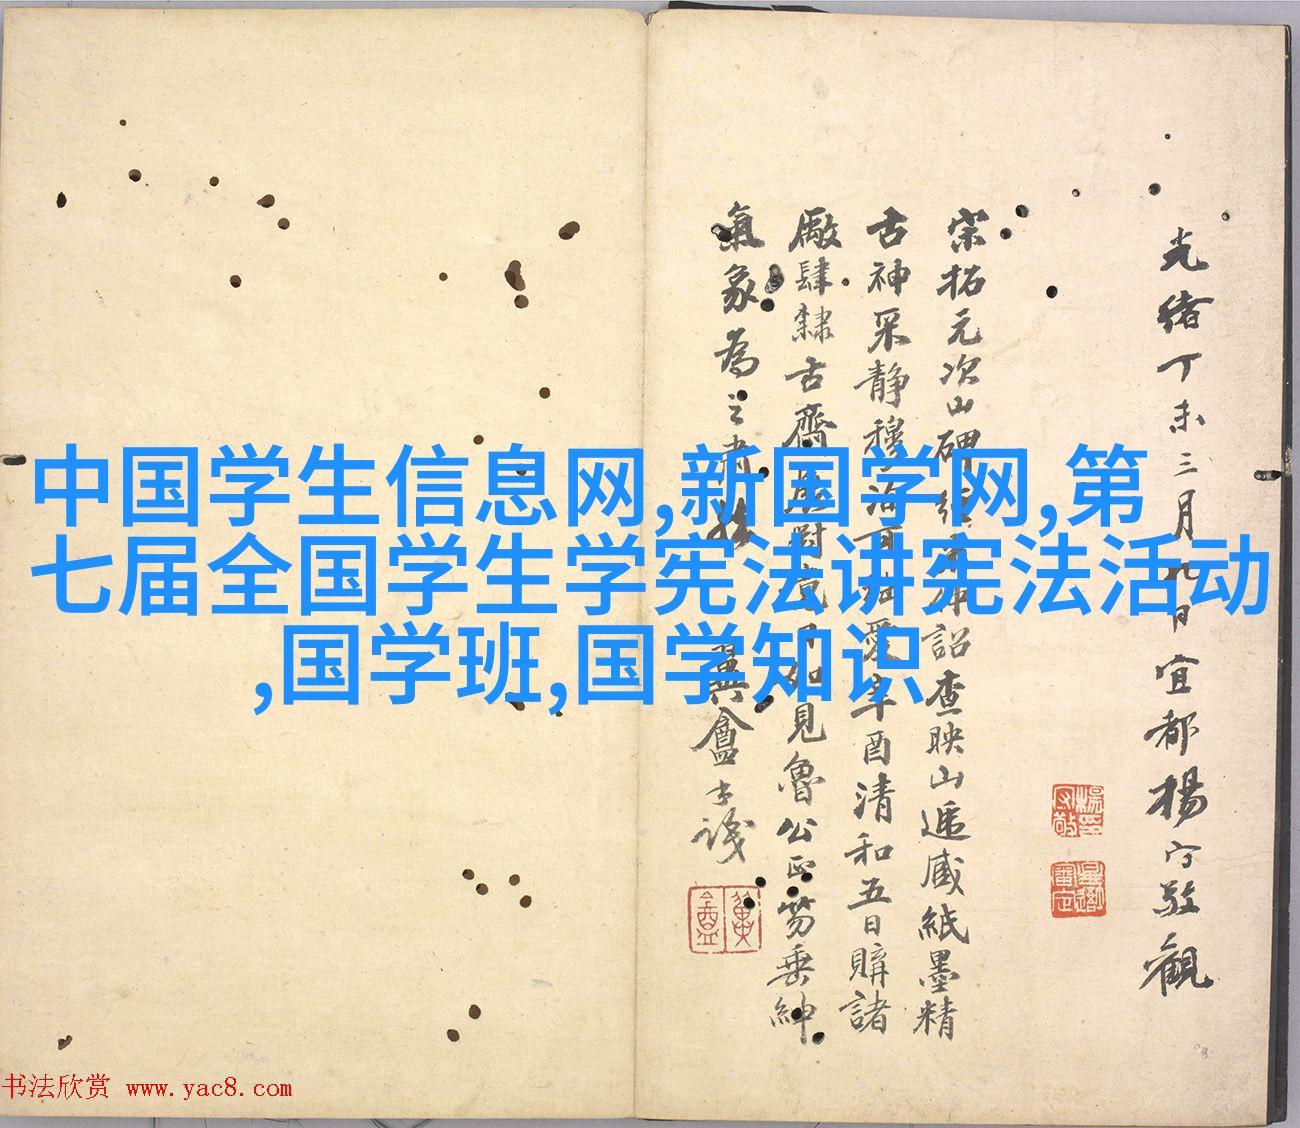 中国学生信息网,新国学网,第
七届全国学生学宪法讲宪法活动
,国学班,国学知识
光緒丁未三月九日宜都楊守敬觀
宋拓元次山碑詔查映山遞臧紙墨精
古神采靜穆可愛辛酉清和五日購諸
廠肆隸古齋展對如見魯公正笏垂紳
氣象為之肅然翼盦識
翼盦
书法欣赏 www.yac8.com